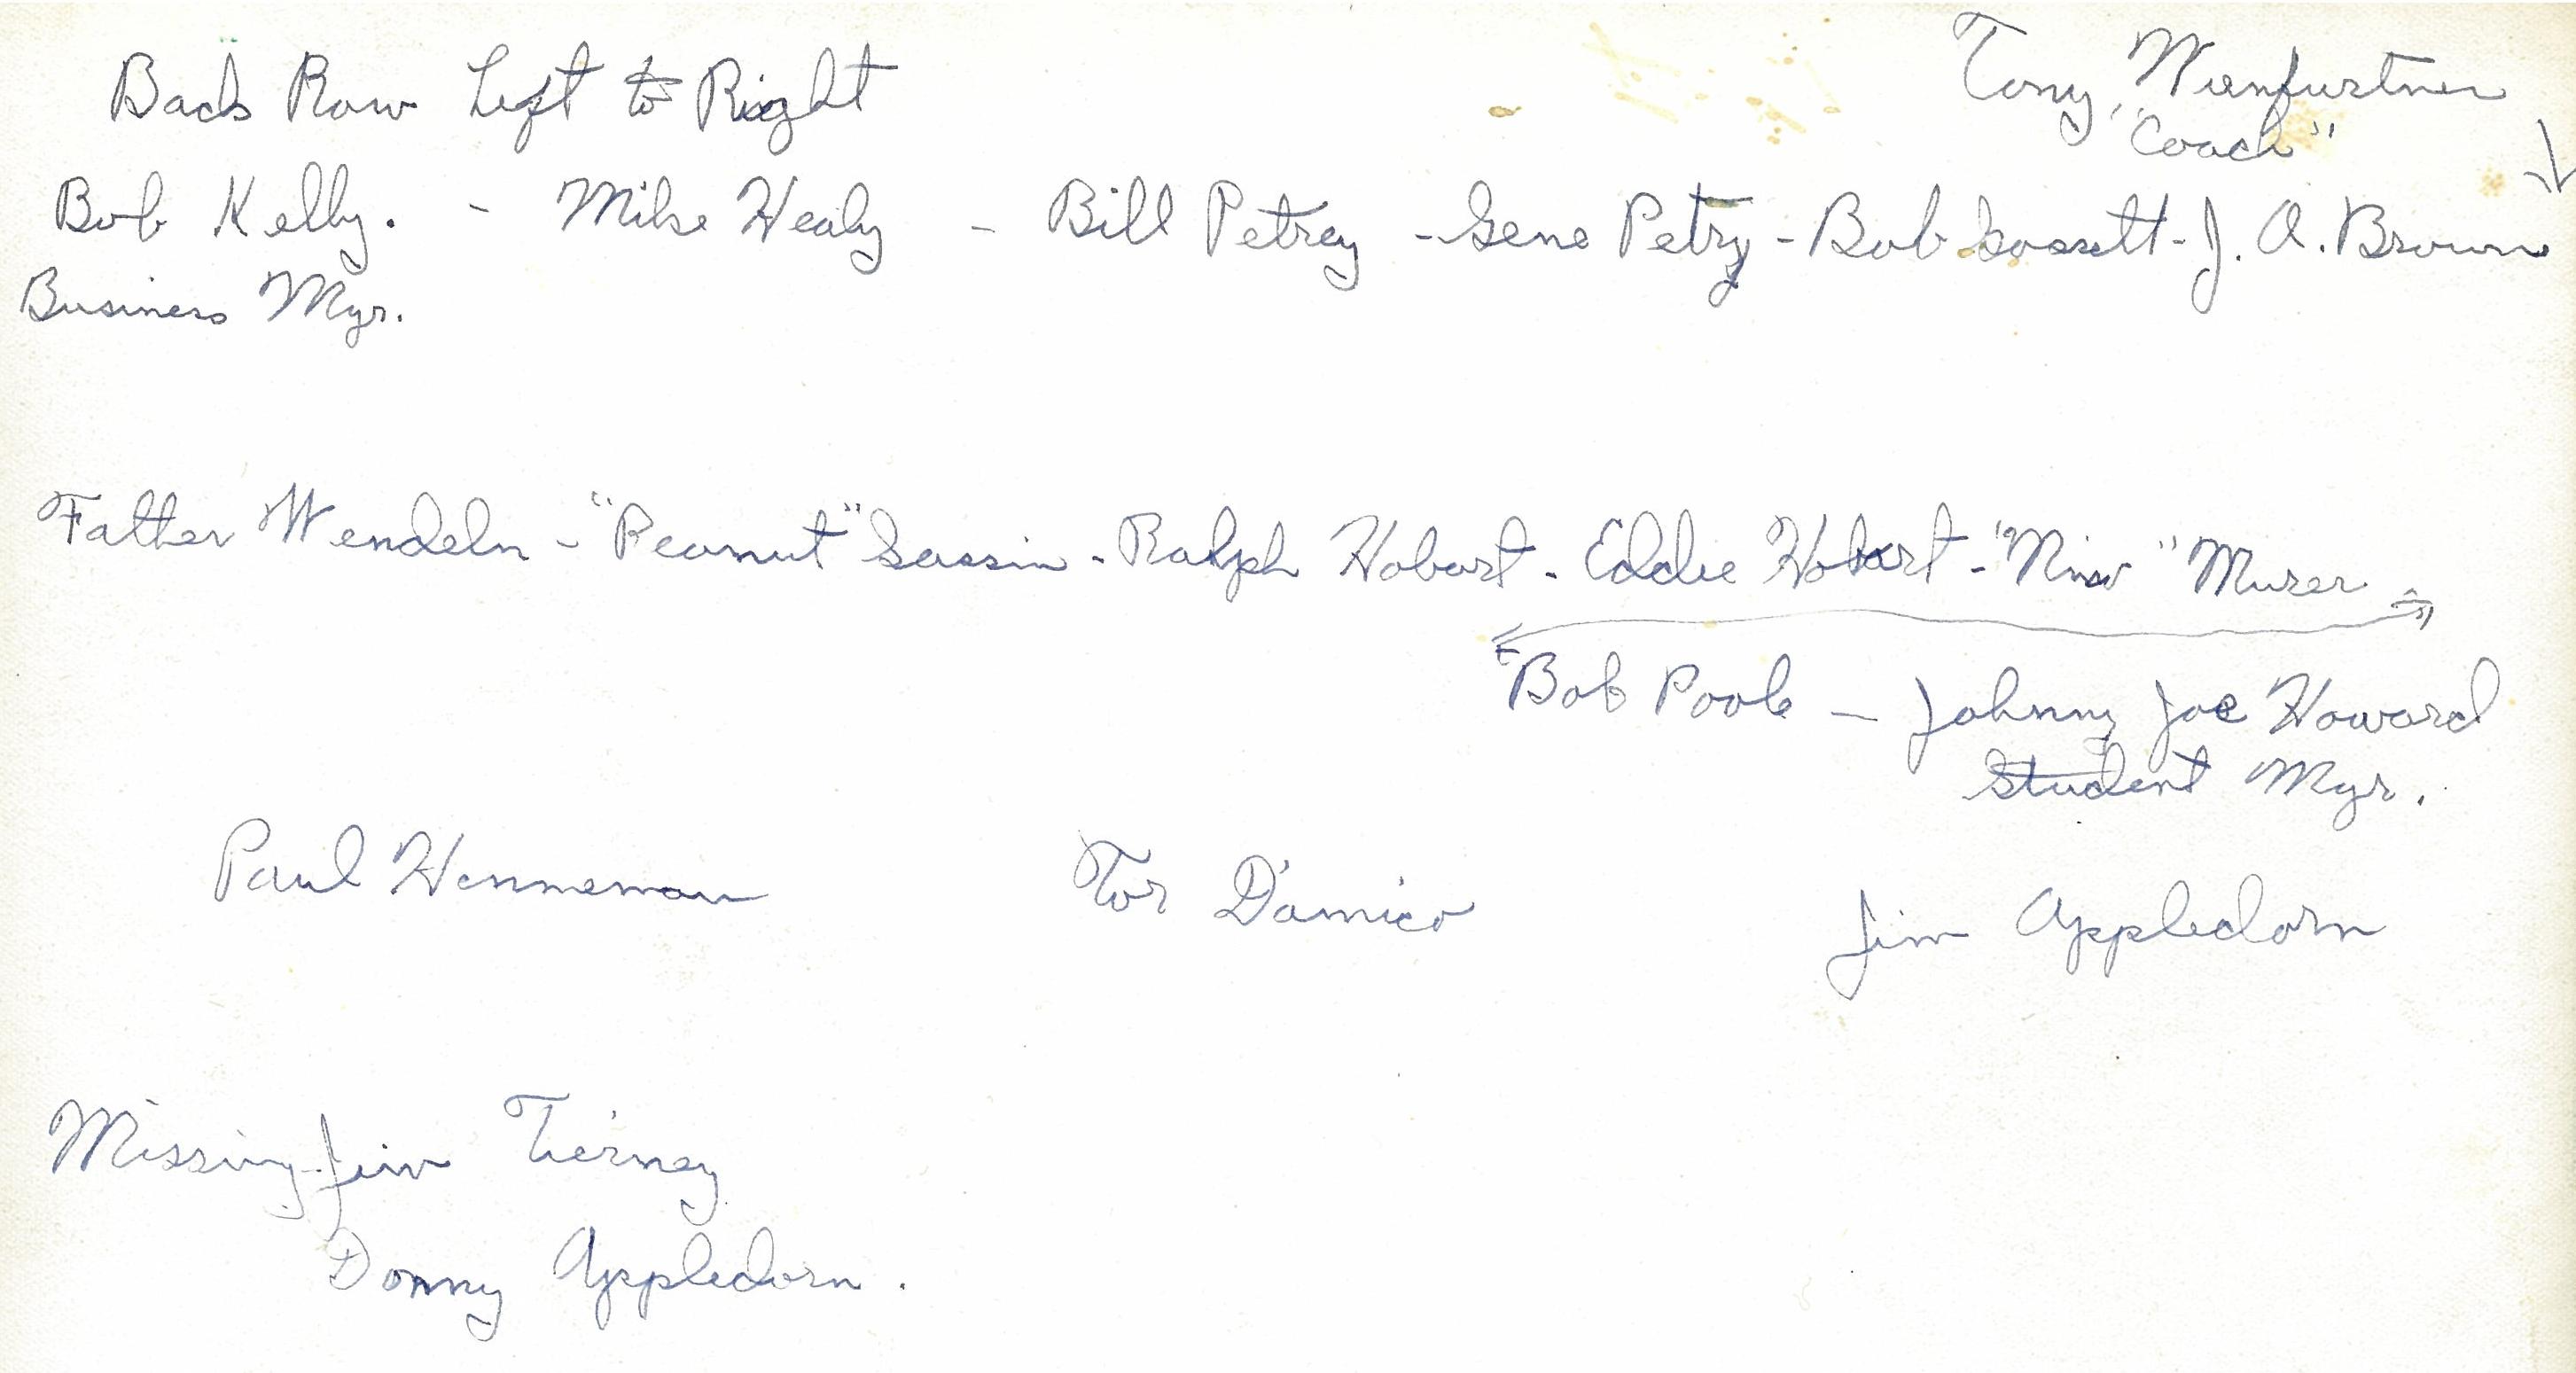 Back Row Left to Right
Tony Wienfurtner
"Coach"
Bob Kelly. - Mike Healy - Bill Petrey - Gene Petry - Bob Gossett - J. A. Brown
Business Mgr.
Father Wendeln - "Peanut" Gussin - Ralph Hobart - Eddie Hobart - "Nino" Murer
Bob Poole - Johnny Joe Howard
Student Mgr.
Paul Henneman Tor D'amico Jim Appledorn
Missing - Jim Tierney
Donny Appledorn.